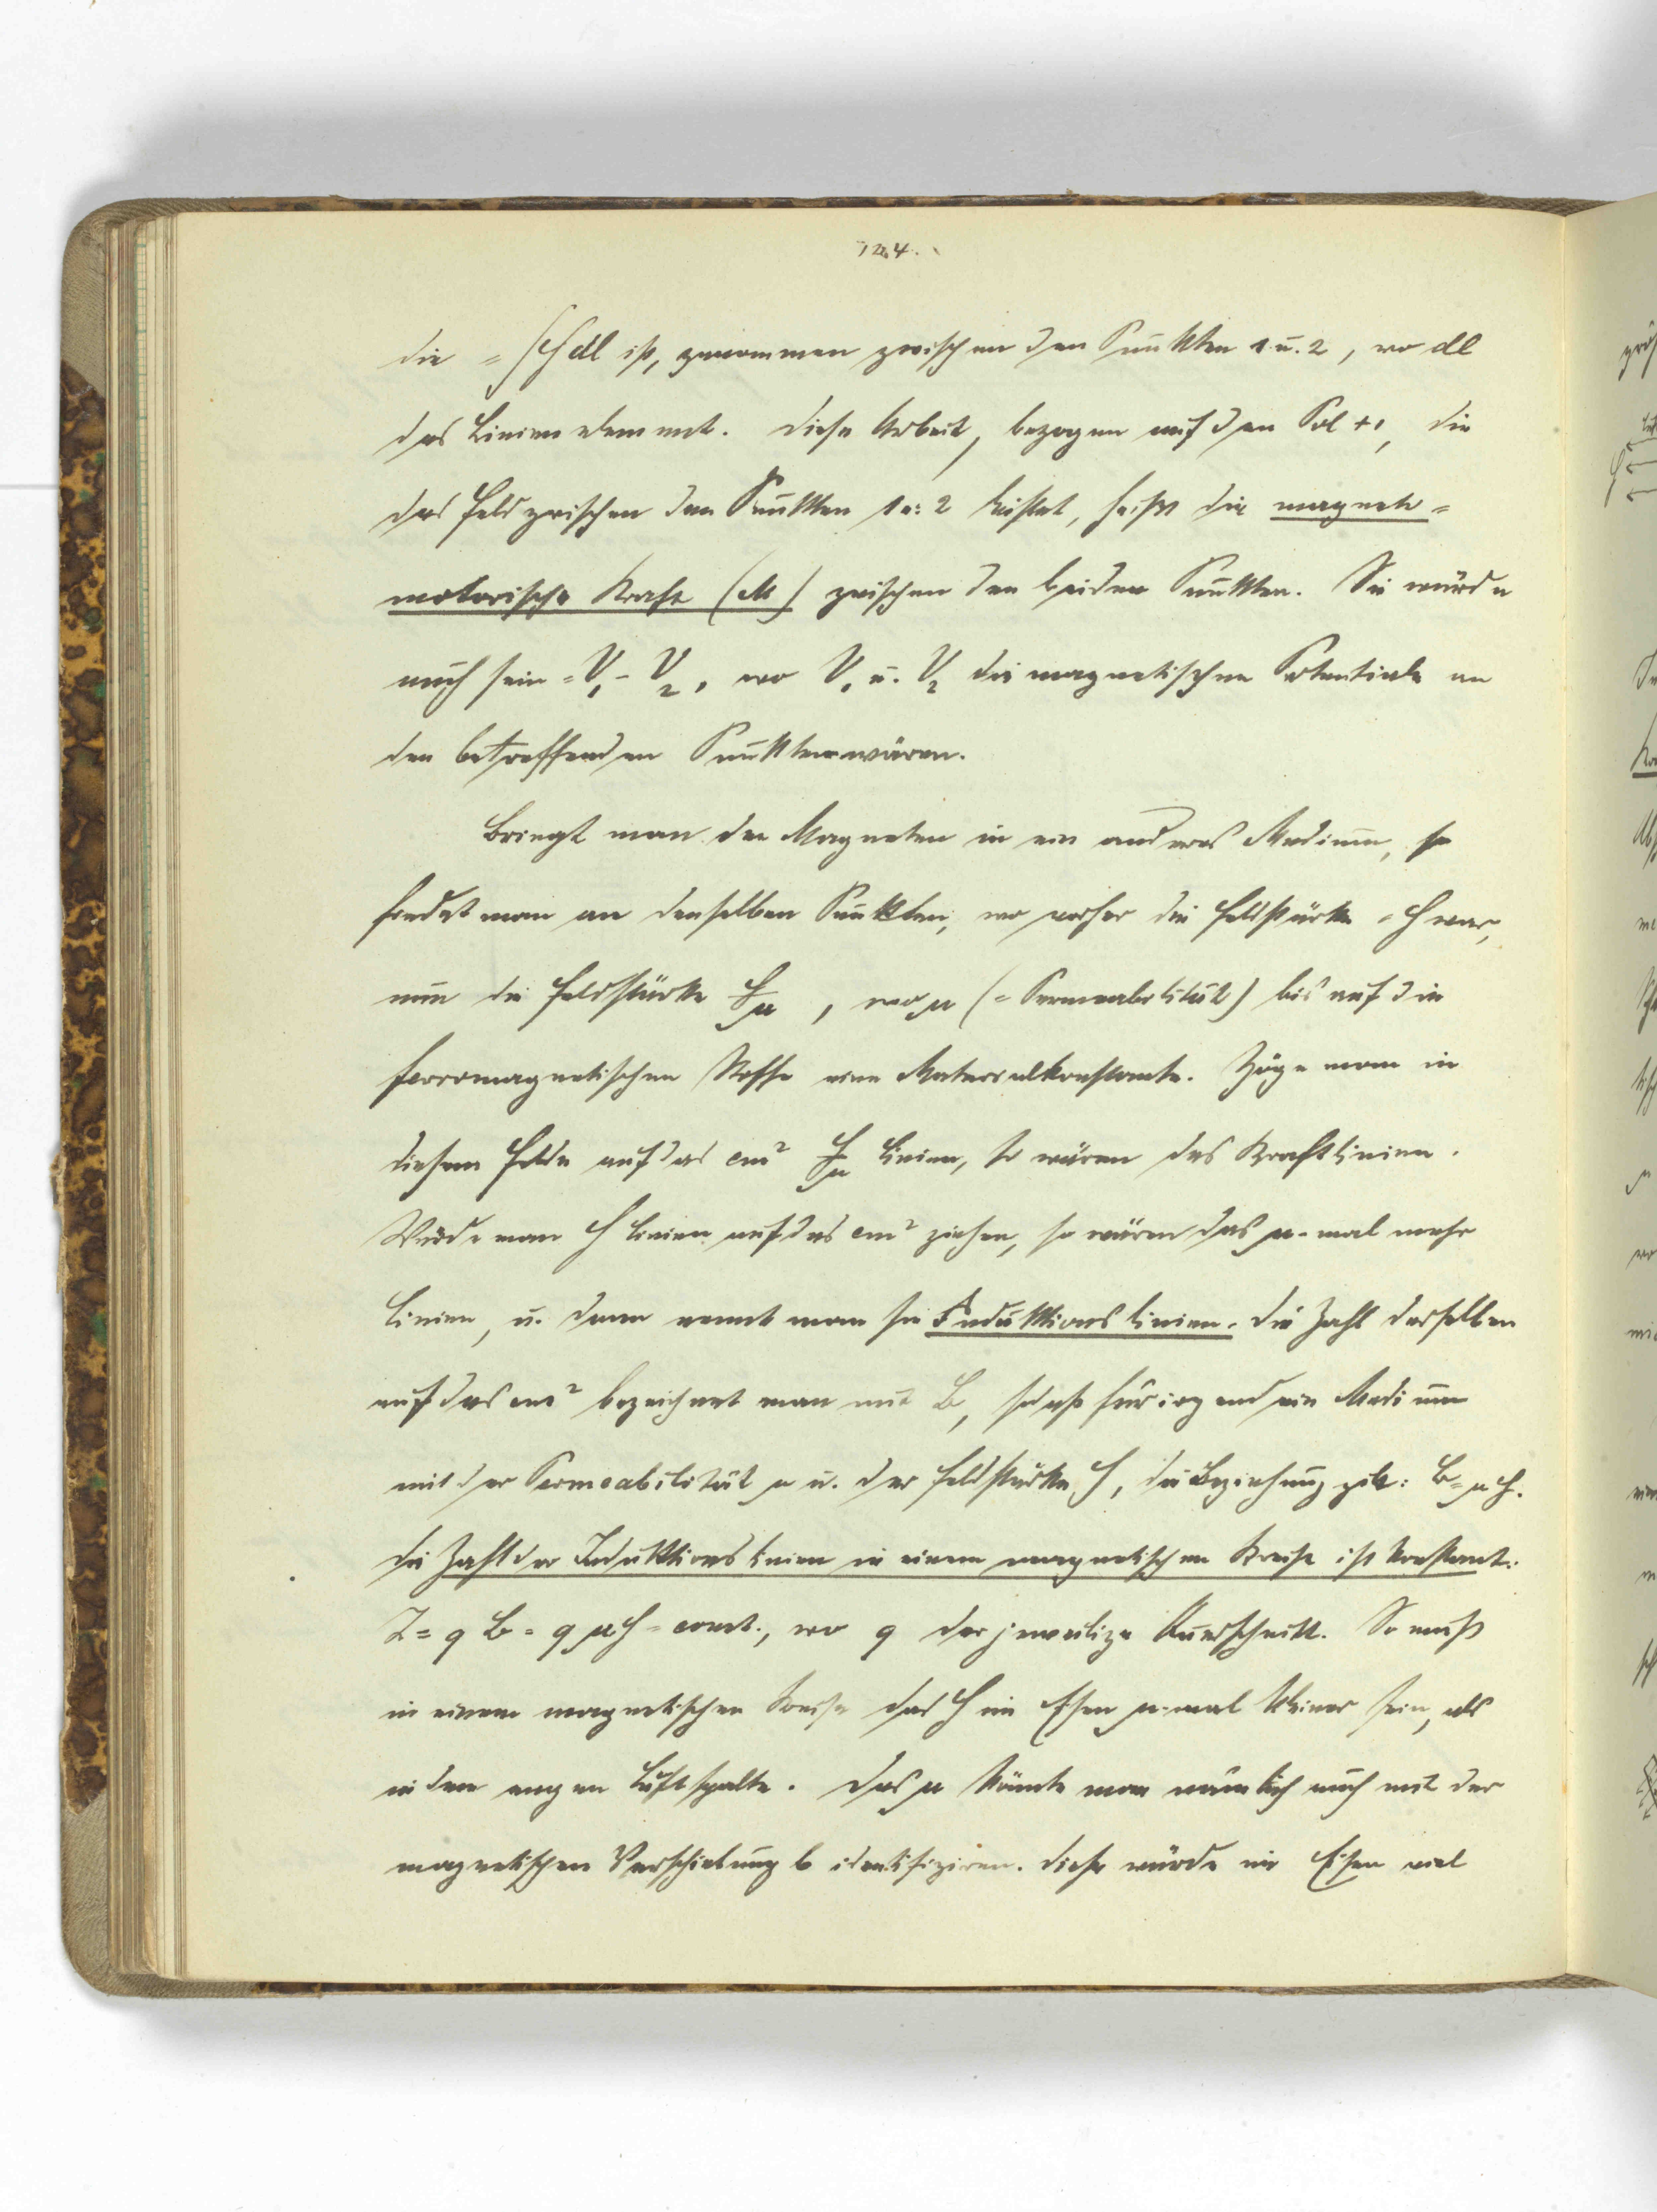 124.
die = ∫ℌ dl ist, genommen zwischen den Punkten 1 u. 2, wo dl
das Linienelement. Diese Arbeit, bezogen auf den Pol +1, die
das Feld zwischen den Punkten 1 u. 2 leistet, heisst die magneto=
motorische Kraft (M) zwischen den beiden Punkten. Sie würde
auch sein = V₁ - V₂, wo V₁ u. V₂ die magnetischen Potentiale an
den betreffenden Punkten wären.
Bringt man den Magneten in ein anderes Medium, so
findet man an denselben Punkten, wo vorher die Feldstärke = ℌ war,
nun die Feldstärke ℌ/μ, wo μ (= Permeabilität) bis auf die
ferromagnetischen Stoffe eine Materialkonstante. Zöge man in
diesem Felde auf das cm² ℌ/μ Linien, so wären das Kraftlinien.
Würde man ℌ Linien auf das cm² ziehen, so wären das μ-mal mehr
Linien, u. dann nennt man sie Induktionslinien. Die Zahl derselben
auf das cm² bezeichnet man mit B, sodass für irgend ein Medium
mit der Permeabilität μ u. der Feldstärke ℌ, die Beziehung gilt: B = μ ℌ.
Die Zahl der Induktionslinien in einem magnetischen Kreise ist konstant:
Z = q B = q μ ℌ = const., wo q der jeweilige Querschnitt. So muss
in einem magnetischen Kreise das ℌ im Eisen μ-mal kleiner sein, als
in dem engen Luftspalte. Das μ könnte man nämlich auch mit der
magnetischen Verschiebung b identifiziren. Diese würde im Eisen viel